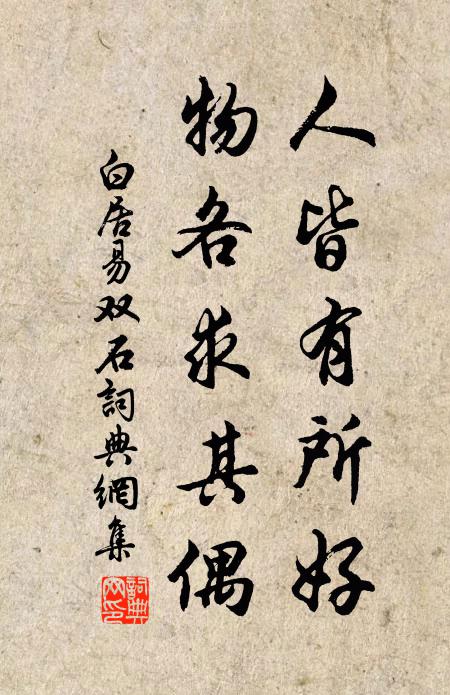 人皆有所好
物各求其偶
白居易双石詞典網集
詞典网印